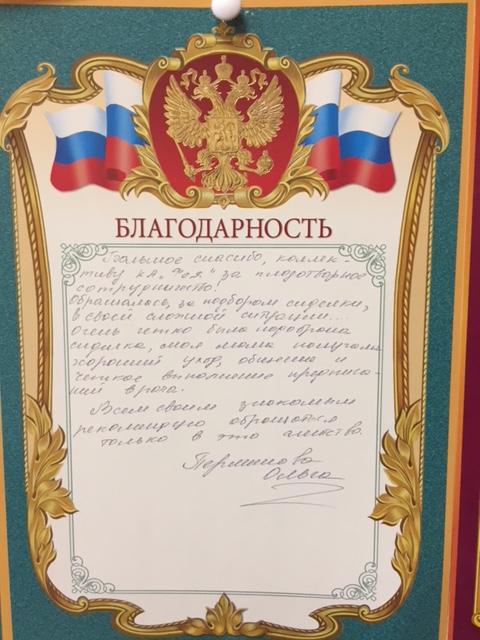 БЛАГОДАРНОСТЬ
Большое спасибо, коллек-
тиву КА "Фея" за плодотворное
сотрудничество!
Обращалась за подбором сиделки,
в своей сложной ситуации....
Очень чётко была подобрана
сиделка, моя мама получала
хороший уход, общение и
чёткое выполнение предписа-
ний врача.
Всем своим знакомым
рекомендую обращаться
только в это агенство.
Перминова
Ольга